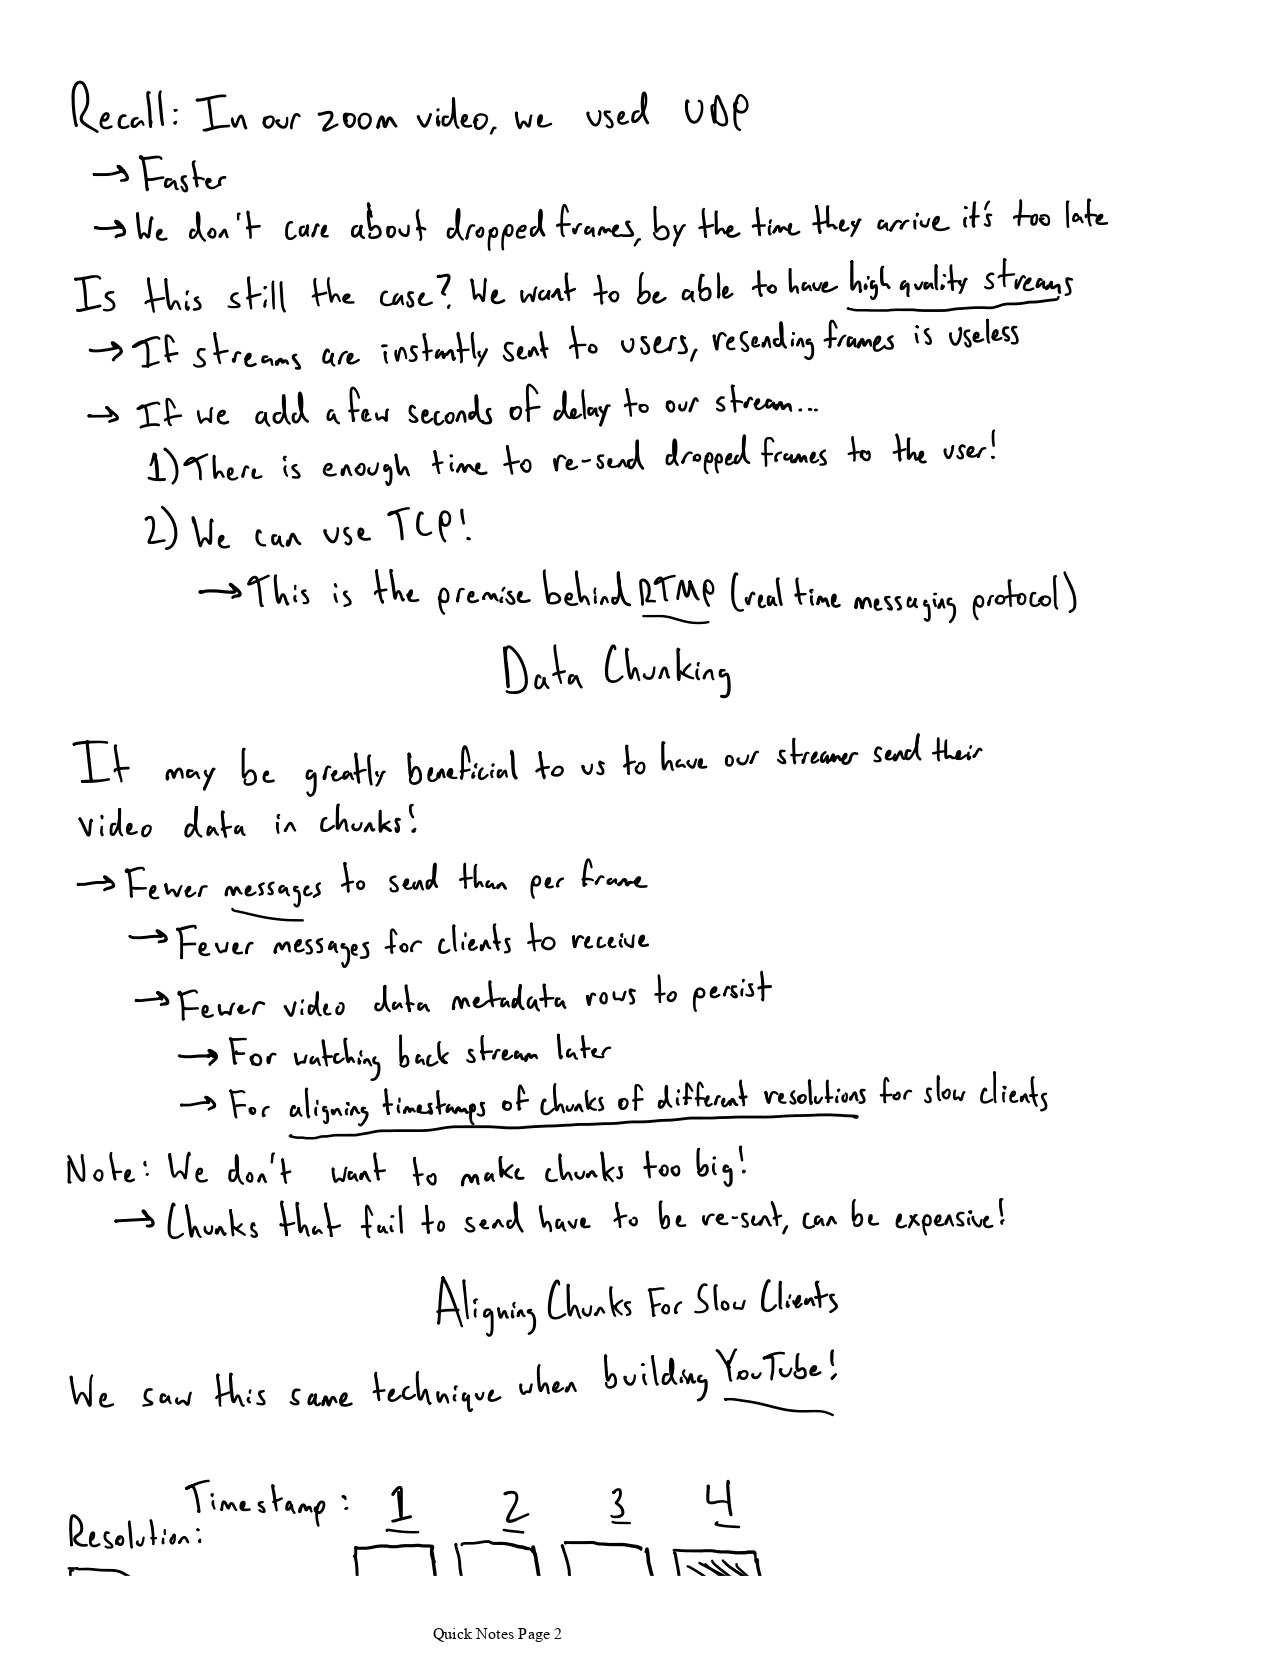 Recall: In our zoom video, we used UDP
→ Faster
→ We don't care about dropped frames, by the time they arrive it's too late
Is this still the case? We want to be able to have high quality streams
→ If streams are instantly sent to users, resending frames is useless
→ If we add a few seconds of delay to our stream...
1) There is enough time to re-send dropped frames to the user!
2) We can use TCP!
→ This is the premise behind RTMP (real time messaging protocol)
Data Chunking
It may be greatly beneficial to us to have our streamer send their
video data in chunks!
→ Fewer messages to send than per frame
→ Fewer messages for clients to receive
→ Fewer video data metadata rows to persist
→ For watching back stream later
→ For aligning timestamps of chunks of different resolutions for slow clients
Note: We don't want to make chunks too big!
→ Chunks that fail to send have to be re-sent, can be expensive!
Aligning Chunks For Slow Clients
We saw this same technique when building YouTube!
Timestamp: 1 2 3 4
Resolution:
Quick Notes Page 2